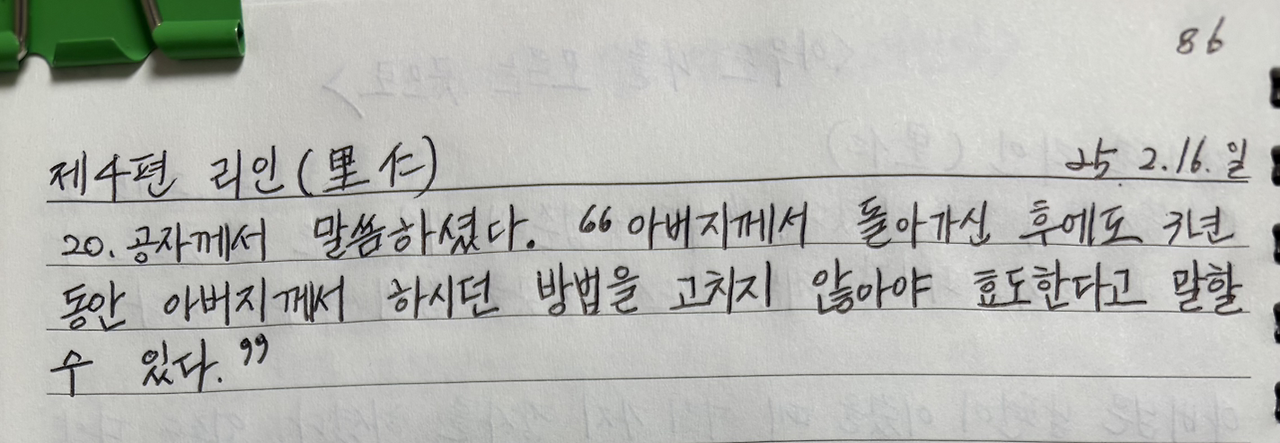 86
제4편 리인(里仁) 25 2.16.일
20. 공자께서 말씀하셨다. "아버지께서 돌아가신 후에도 3년
동안 아버지께서 하시던 방법을 고치지 않아야 효도한다고 말할
수 있다."